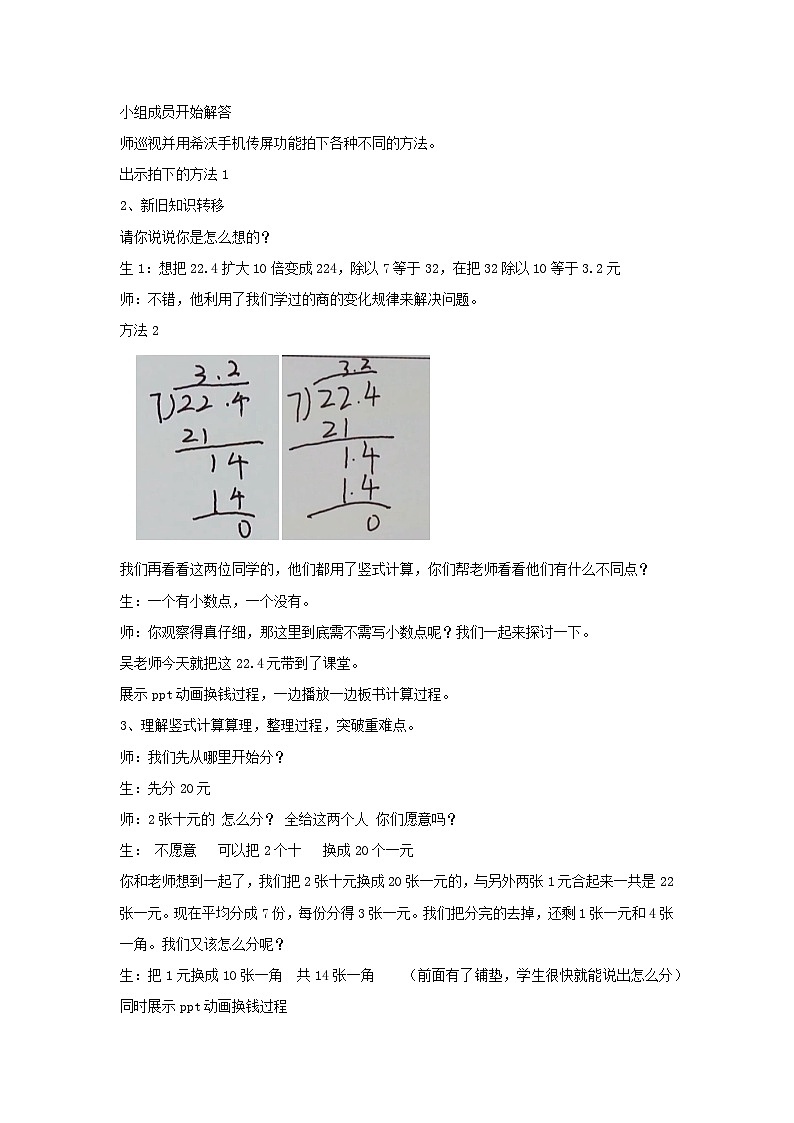 小组成员开始解答
师巡视并用希沃手机传屏功能拍下各种不同的方法。
出示拍下的方法1
2、新旧知识转移
请你说说你是怎么想的？
生1：想把22.4扩大10倍变成224，除以7等于32，在把32除以10等于3.2元
师：不错，他利用了我们学过的商的变化规律来解决问题。
方法2
3.2
7)22.4
21
14
14
0
3.2
7)22.4
21
1.4
1.4
0
我们再看看这两位同学的，他们都用了竖式计算，你们帮老师看看他们有什么不同点？
生：一个有小数点，一个没有。
师：你观察得真仔细，那这里到底需不需写小数点呢？我们一起来探讨一下。
吴老师今天就把这22.4元带到了课堂。
展示ppt动画换钱过程，一边播放一边板书计算过程。
3、理解竖式计算算理，整理过程，突破重难点。
师：我们先从哪里开始分？
生：先分20元
师：2张十元的 怎么分？ 全给这两个人 你们愿意吗？
生： 不愿意 可以把2个十 换成20个一元
你和老师想到一起了，我们把2张十元换成20张一元的，与另外两张1元合起来一共是22
张一元。现在平均分成7份，每份分得3张一元。我们把分完的去掉，还剩1张一元和4张
一角。我们又该怎么分呢？
生：把1元换成10张一角 共14张一角 （前面有了铺垫，学生很快就能说出怎么分）
同时展示ppt动画换钱过程